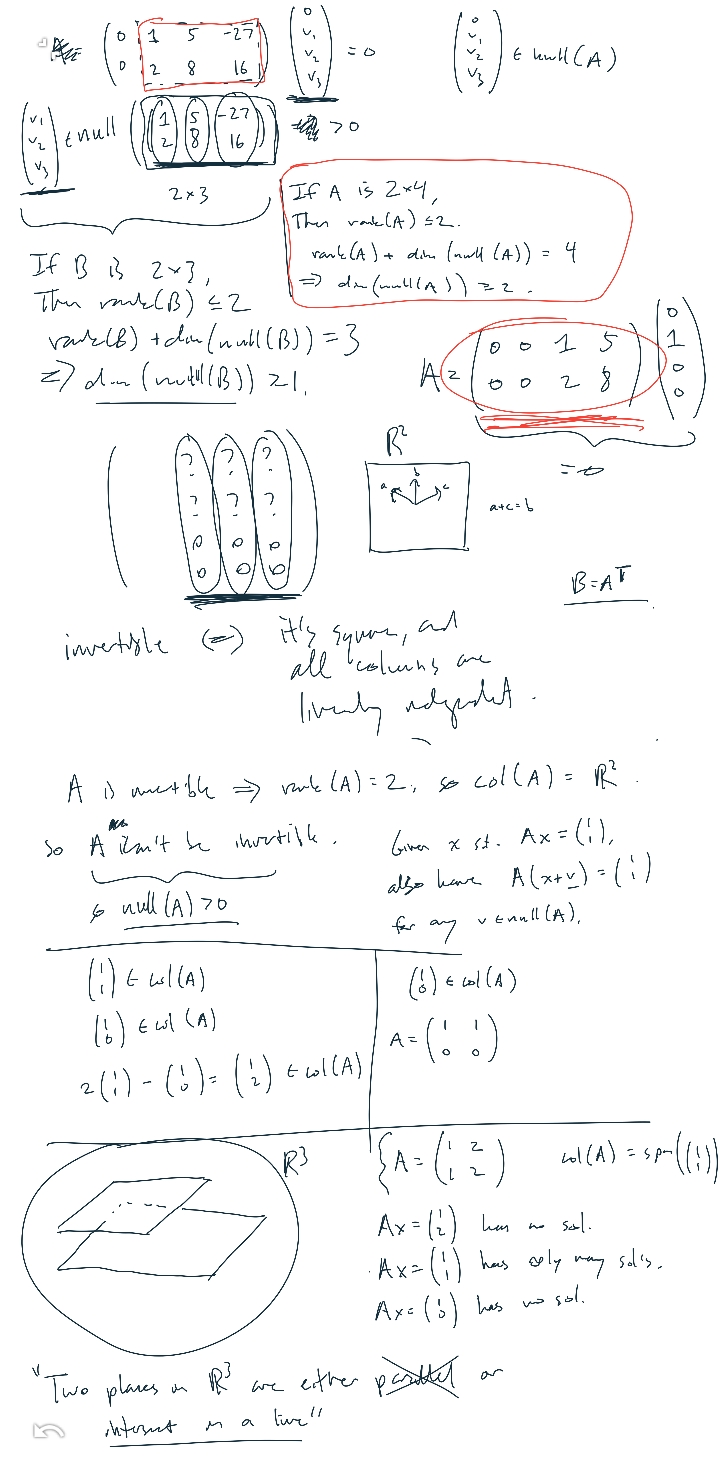 A = (0 1 5 -27; 0 2 8 16) (0; v₁; v₂; v₃) = 0
(0; v₁; v₂; v₃) ∈ null(A)
(v₁; v₂; v₃) ∈ null ((1 5 -27; 2 8 16)) > 0
2×3
If A is 2×4,
Then rank(A) ≤ 2.
rank(A) + dim (null (A)) = 4
⇒ dim(null(A)) ≥ 2.
If B is 2×3,
Then rank(B) ≤ 2
rank(B) + dim(null(B)) = 3
⇒ dim (null(B)) ≥ 1.
A = (0 0 1 5; 0 0 2 8) (0; 1; 0; 0)
= 0
(? ? ?; ? ? ?; 0 0 0; 0 0 0)
R²
a b c
a+c=b
B = Aᵀ
invertible ⇔ it's square, and
all columns are
linearly independent.
A is invertible ⇒ rank(A) = 2, so col(A) = R².
So A can't be invertible.
so null(A) > 0
Given x st. Ax = (1; 1),
also have A(x+v) = (1; 1)
for any v ∈ null(A).
(1; 1) ∈ col(A)
(1; 0) ∈ col(A)
2(1; 1) - (1; 0) = (1; 2) ∈ col(A)
(1; 0) ∈ col(A)
A = (1 1; 0 0)
R³
{A = (1 2; 1 2) col(A) = span((1; 1))
Ax = (1; 2) has no sol.
Ax = (1; 1) has ∞ly many sol's.
Ax = (1; 0) has no sol.
"Two planes in R³ are either parallel or
intersect in a line"